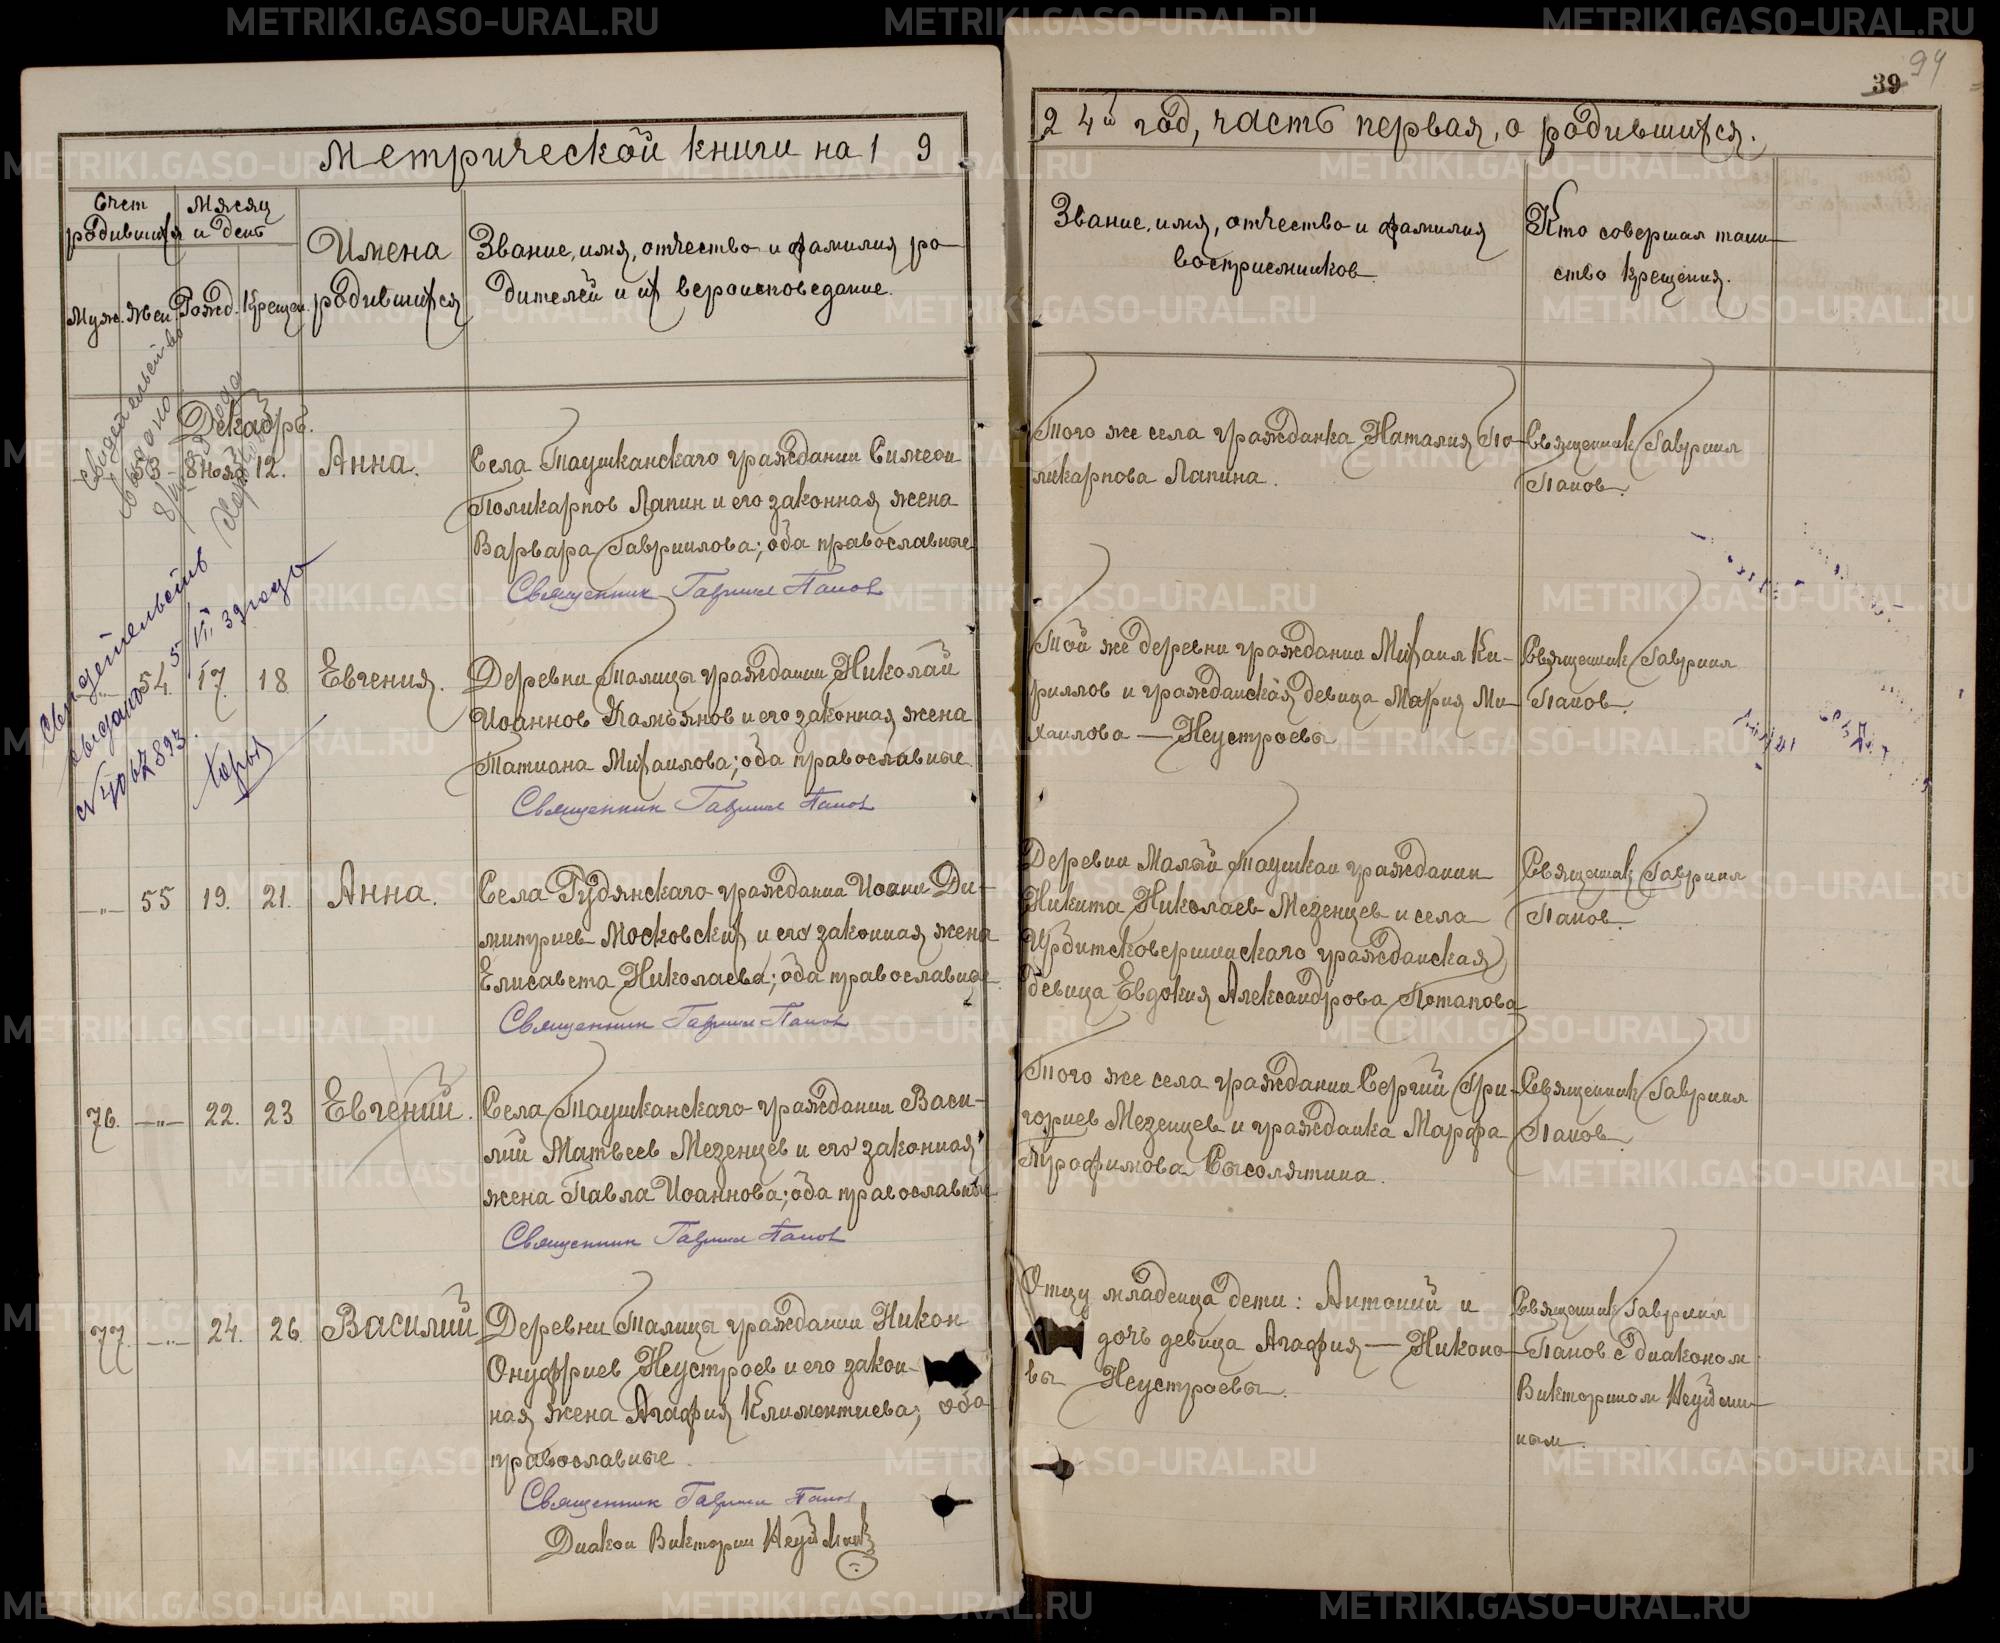 94
39
Метрической книги на 19
24й год, часть первая, о родившихся.
Счет родившихся
Месяц и день
Имена родившихся
Звание, имя, отчество и фамилия ро-
дителей и их вероисповедание.
Муж. Жен. Рожд. Крещен.
Звание, имя, отчество и фамилия
восприемников.
Кто совершал таин-
ство крещения.
Декабрь.
53 8 нояб. 12. Анна.
Села Таушканскаго гражданин Симеон
Поликарпов Лапин и его законная жена
Варвара Гавриилова; оба православные
Священник Гавриил Попов
Того же села гражданка Наталия По-
ликарпова Лапина.
Священник Гавриил
Попов.
Свидетельство
выдано
Свидетельств
выдано 5/VII 39 года
N 4067893.
-„- 54. 17. 18 Евгения.
Деревни Талицы гражданин Николай
Иоаннов Камъянов и его законная жена
Татиана Михаилова; оба православные.
Священник Гавриил Попов
Той же деревни гражданин Михаил Ки-
риллов и гражданская девица Мария Ми-
хаилова — Неустроевы
Священник Гавриил
Попов.
-„- 55 19. 21. Анна.
Села Рудянскаго гражданин Иоанн Ди-
митриев Московских и его законная жена
Елисавета Николаева; оба православные
Священник Гавриил Попов
Деревни Малый Таушкан гражданин
Никита Николаев Мезенцев и села
Ирбитсковершинскаго гражданская
девица Евдокия Александрова Потапова
Священник Гавриил
Попов.
76. -„- 22. 23 Евгений.
Села Таушканскаго гражданин Васи-
лий Матвеев Мезенцев и его законная
жена Павла Иоаннова; оба православные
Священник Гавриил Попов
Того же села гражданин Сергий Гри-
гориев Мезенцев и гражданка Марфа
Трофимова Сысолятина.
Священник Гавриил
Попов.
77. -„- 24. 26. Василий
Деревни Талицы гражданин Никон
Онуфриев Неустроев и его закон-
ная жена Агафия Климентиева; оба
православные.
Священник Гавриил Попов
Диакон Викторин Неуймин
Отцу младенца дети: Антоний и
дочь девица Агафия — Никоно-
вы Неустроевы.
Священник Гавриил
Попов с диаконом
Викторином Неуйми-
ным.
METRIKI.GASO-URAL.RU